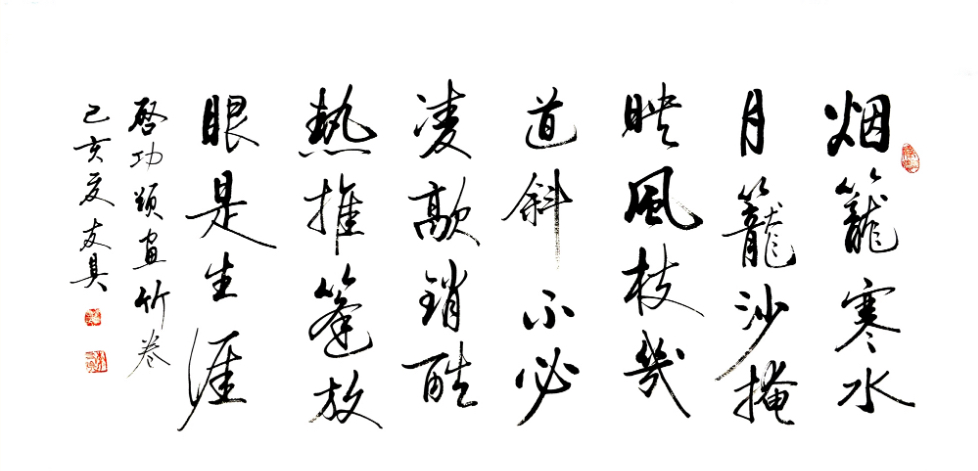 烟籠寒水
月籠沙掩
映風枝幾
道斜不必
凌歊銷酷
熱推篷放
眼是生涯
啓功題畫竹卷
己亥夏友具